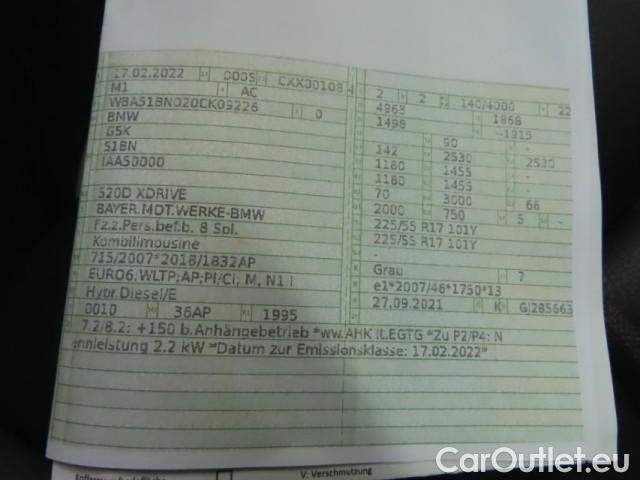 17.02.2022 0005 CXX00108 4
M1 AC
WBA51BN020CK09226 0
BMW
G5K
51BN
IAA50000
520D XDRIVE
BAYER.MOT.WERKE-BMW
Fz.z.Pers.bef.b. 8 Spl.
Kombilimousine
715/2007*2018/1832AP
EURO6,WLTP;AP;PI/CI, M, N1 I
Hybr.Diesel/E
0010 36AP 1995
2 2 140/4000 22
4963 1868
1498 -1915
90 -
142 2530 2530
1180 1455 -
1180 1455 -
70 3000 66
2000 750 5 -
225/55 R17 101Y
225/55 R17 101Y
-
-
Grau 7
e1*2007/46*1750*13
27.09.2021 K GJ285663
7.2/8.2: +150 b.Anhängebetrieb *ww.AHK lt.EGTG *Zu P2/P4: N
ennleistung 2.2 kW *Datum zur Emissionsklasse: 17.02.2022*
V. Verschmutzung
CarOutlet.eu